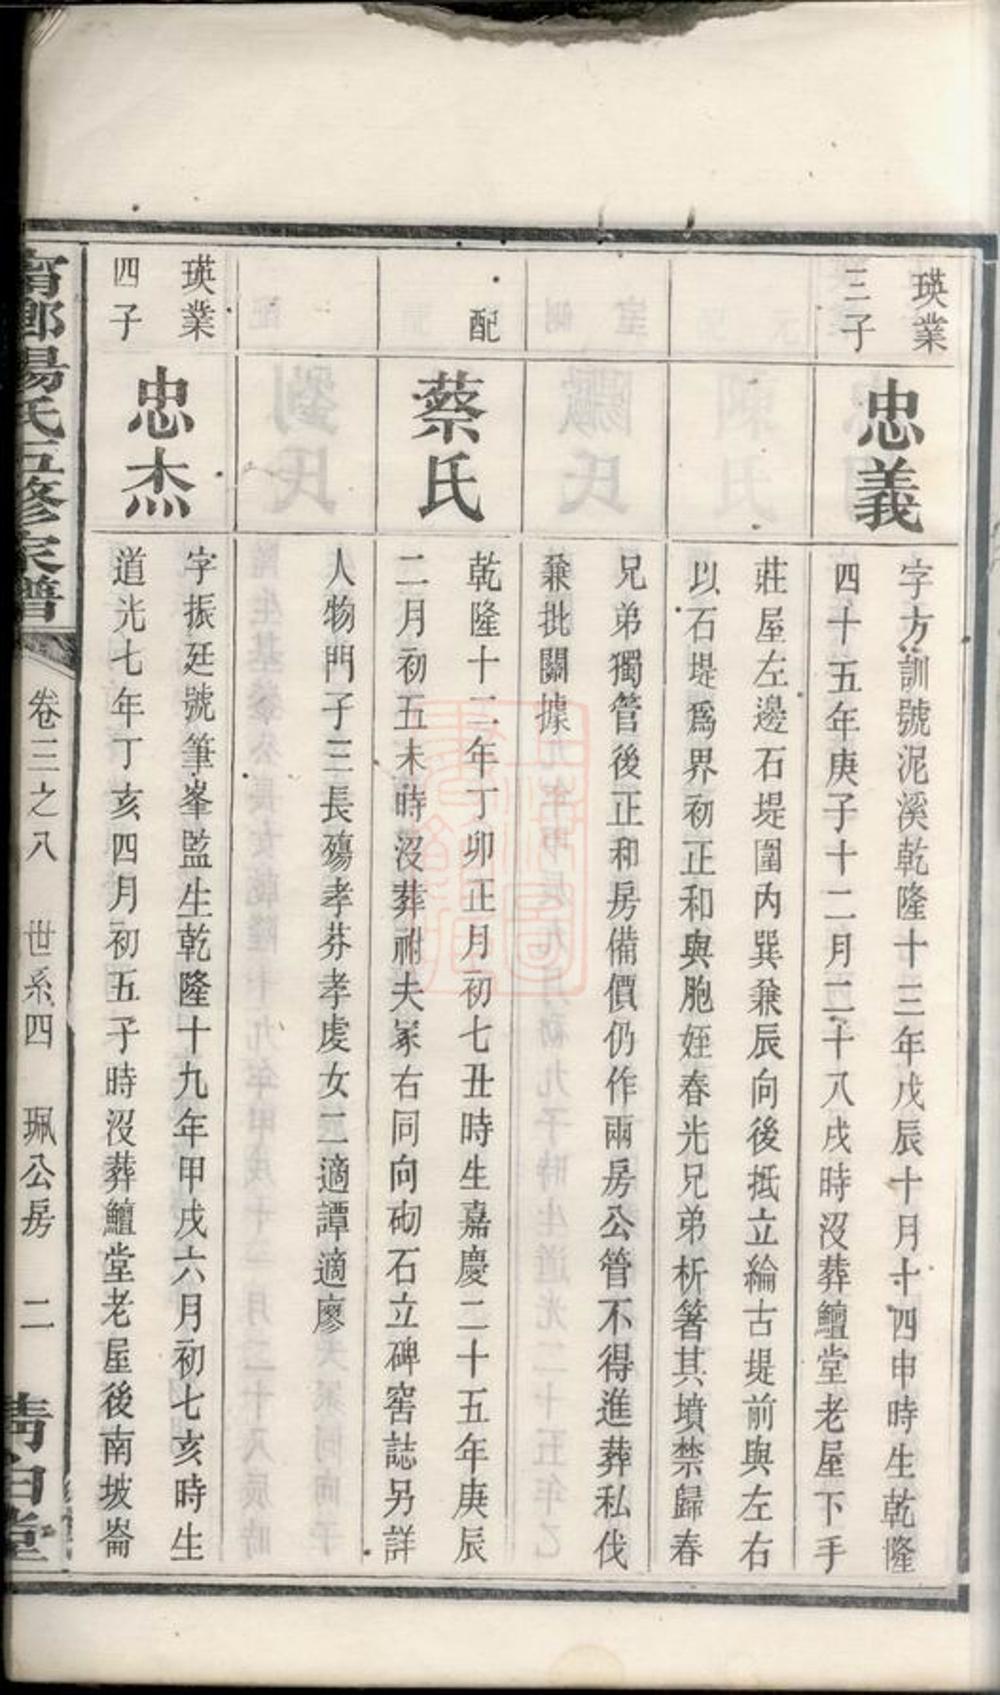 瑛業
三子
忠義
字方訓號泥溪乾隆十三年戊辰十月十四申時生乾隆
四十五年庚子十二月二十八戌時沒葬鱣堂老屋下手
莊屋左邊石堤圍內巽兼辰向後抵立綸古堤前與左右
以石堤爲界初正和與胞姪春光兄弟析箸其墳禁歸春
兄弟獨管後正和房備價仍作兩房公管不得進葬私伐
兼批關據
配
蔡氏
乾隆十二年丁卯正月初七丑時生嘉慶二十五年庚辰
二月初五未時沒葬祔夫冢右同向砌石立碑窖誌另詳
人物門子三長殤孝芬孝虔女二適譚適廖
瑛業
四子
忠杰
字振廷號筆峯監生乾隆十九年甲戌六月初七亥時生
道光七年丁亥四月初五子時沒葬鱣堂老屋後南坡崙
甯鄉湯氏五修家譜
卷三之八 世系四 珮公房 二
清白堂